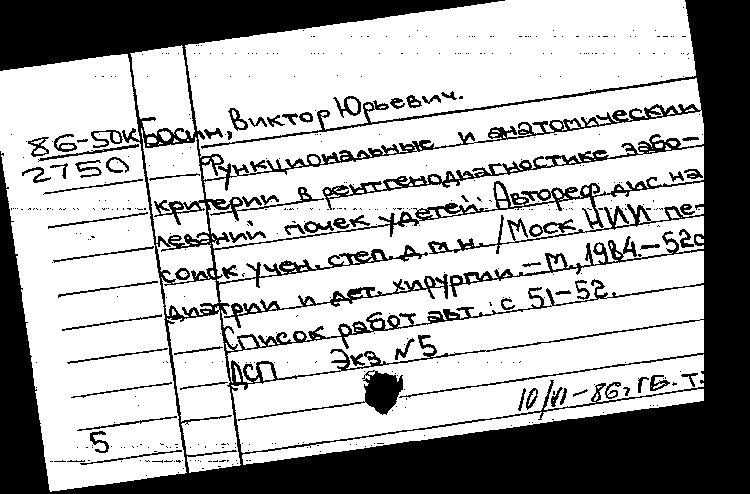 86-50к Босин, Виктор Юрьевич.
2750 Функциональные и анатомический
критерии в рентгенодиагностике забо-
леваний почек у детей: Автореф. дис. на
соиск. учен. степ. д.м.н. /Моск. НИИ пе-
диатрии и дет. хирургии. – М., 1984. – 52с
Список работ авт.: с 51-52.
ДСП Экз. №5.
10/VI-86г ГБ. Т.
5